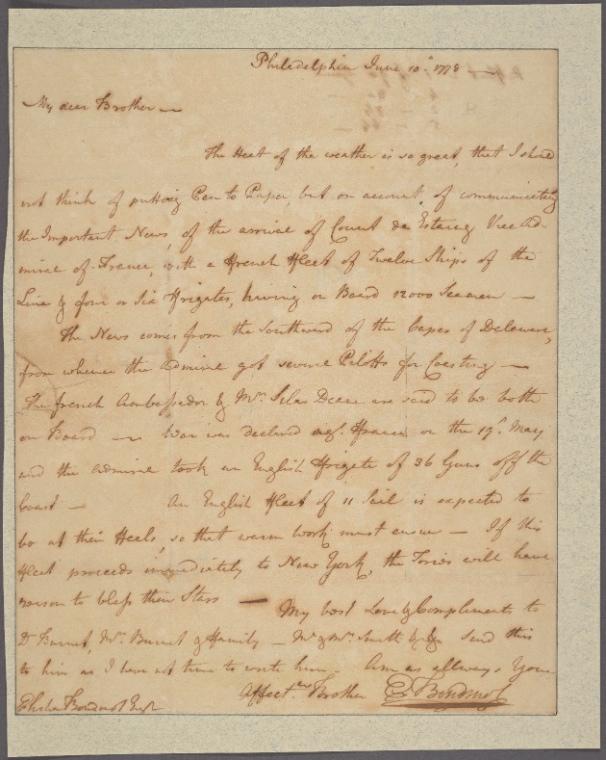 Philadelphia June 10th 1778 —
My dear Brother —
The Heat of the weather is so great, that I should
not think of putting Pen to Paper, but on account, of communicating
the Important News, of the arrival of Count de Estaing Vice Ad-
miral of France, with a French Fleet of Twelve Ships of the
Line & four or Six Frigates, having on Board 12000 Seamen —
The News comes from the Southward of the Capes of Delaware,
from whence the Admiral got several Pilotts for Coasting —
The french Ambassador & Mr. Silas Deane are said to be both
on Board — War was declared agt. France on the 19th. May
and the Admiral took an English Frigate of 36 Guns off the
Coast — An English Fleet of 11 Sail is expected to
be at their Heels, so that warm work must ensue — If this
Fleet proceeds immediately to New York, the Tories will have
reason to bless their Stars — My best Love & Compliments to
Dr Burnet, Mrs. Burnet & Family — Mr & Mrs. Smith send this
to him as I have not time to write him — Am as allways Your
Affectte Brother E. Boudinot
Elisha Boudinot Esqr